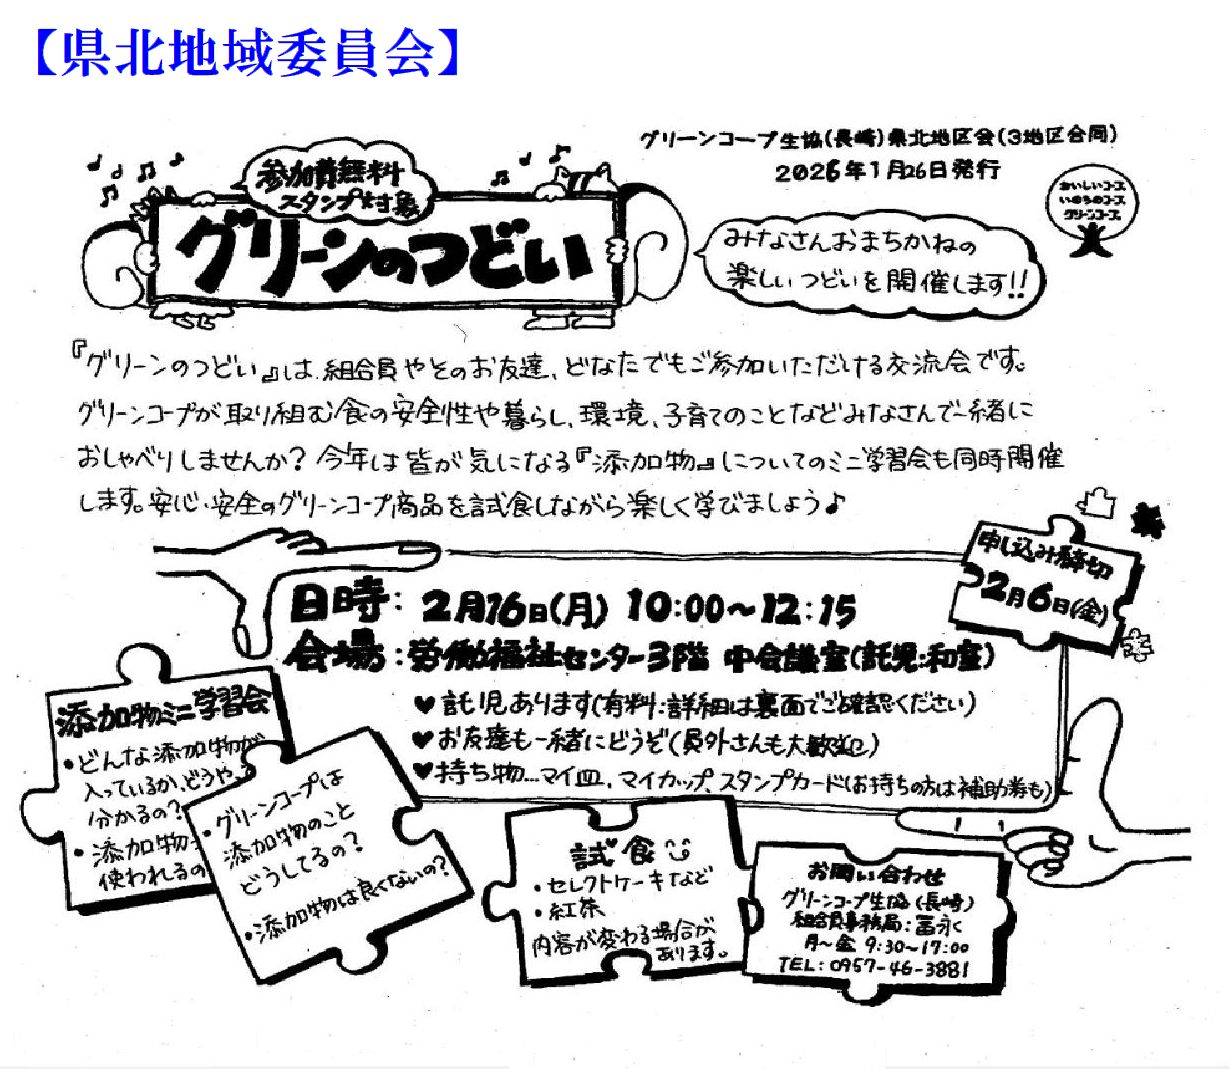 【県北地域委員会】
グリーンコープ生協(長崎)県北地区会(3地区合同)
2026年1月26日発行
おいしいコープ
いのちのコープ
グリーンコープ
参加費無料
スタンプ対象
グリーンのつどい
みなさんおまちかねの
楽しいつどいを開催します!!
『グリーンのつどい』は、組合員やそのお友達、どなたでもご参加いただける交流会です。
グリーンコープが取り組む食の安全性や暮らし、環境、子育てのことなどみなさんで一緒に
おしゃべりしませんか? 今年は皆が気になる『添加物』についてのミニ学習会も同時開催
します。安心・安全のグリーンコープ商品を試食しながら楽しく学びましょう♪
申し込み締切
2月6日(金)
日時:2月16日(月) 10:00~12:15
会場:労働福祉センター3階 中会議室(託児:和室)
♥託児あります(有料:詳細は裏面でご確認ください)
♥お友達も一緒にどうぞ(員外さんも大歓迎)
♥持ち物…マイ皿、マイカップ、スタンプカード(お持ちの方は補助券も)
添加物ミニ学習会
・どんな添加物が
入っているか、どうや
分かるの?
・添加物
使われるの
・グリーンコープは
添加物のこと
どうしてるの?
・添加物は良くないの?
試食
・セレクトケーキなど
・紅茶
内容が変わる場合が
あります。
お問い合わせ
グリーンコープ生協(長崎)
組合員事務局:冨永
月~金 9:30~17:00
TEL:0957-46-3881